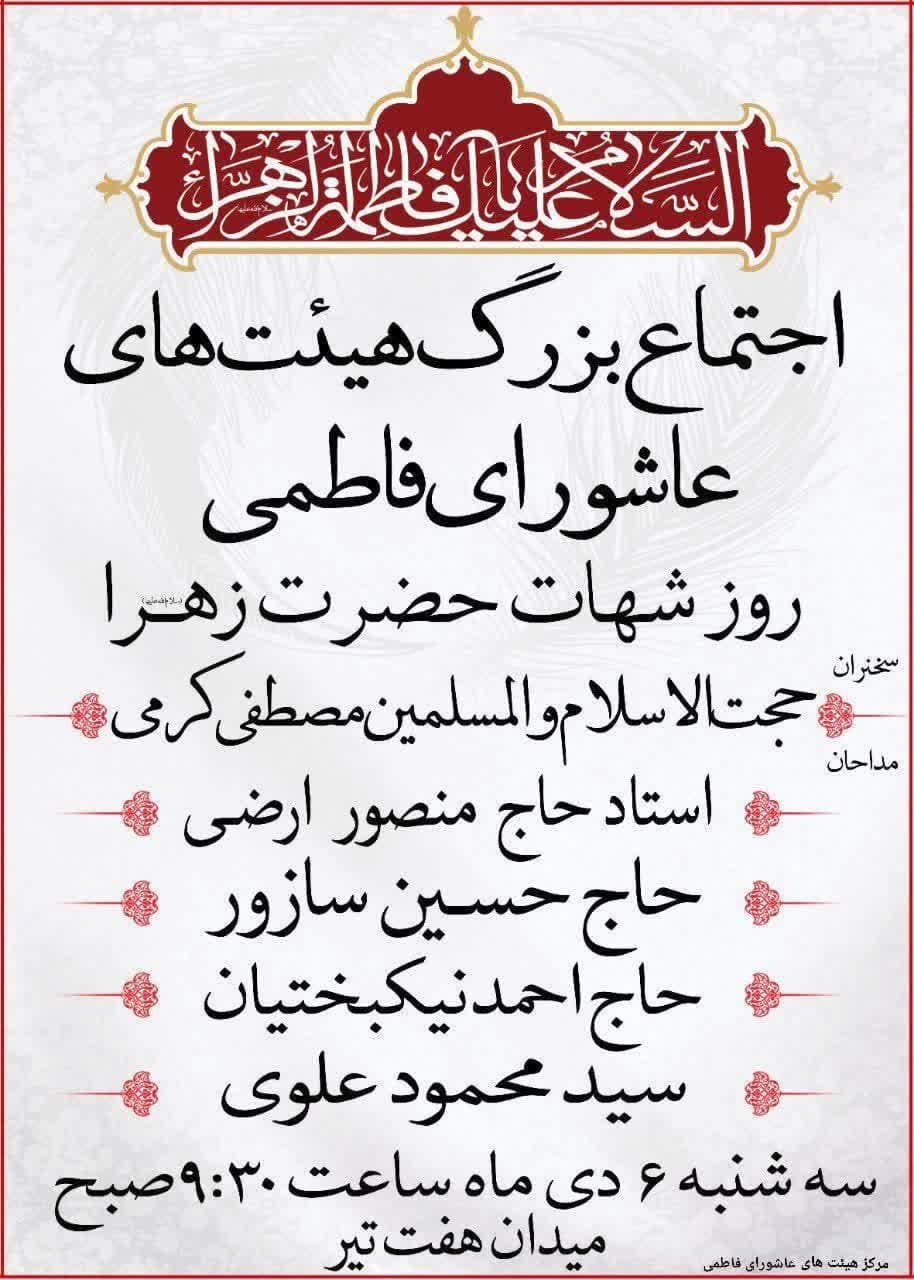 السَّلامُ عَلَيكِ يا فاطِمَةُ الزَّهراءُ سلام‌الله‌علیها
اجتماع بزرگ هیئت‌های
عاشورای فاطمی
روز شهات حضرت زهرا (سلام‌الله‌علیها)
سخنران
حجت‌الاسلام والمسلمین مصطفی کرمی
مداحان
استاد حاج منصور ارضی
حاج حسین سازور
حاج احمد نیکبختیان
سید محمود علوی
سه شنبه ۶ دی ماه ساعت ۹:۳۰ صبح
میدان هفت تیر
مرکز هیئت های عاشورای فاطمی